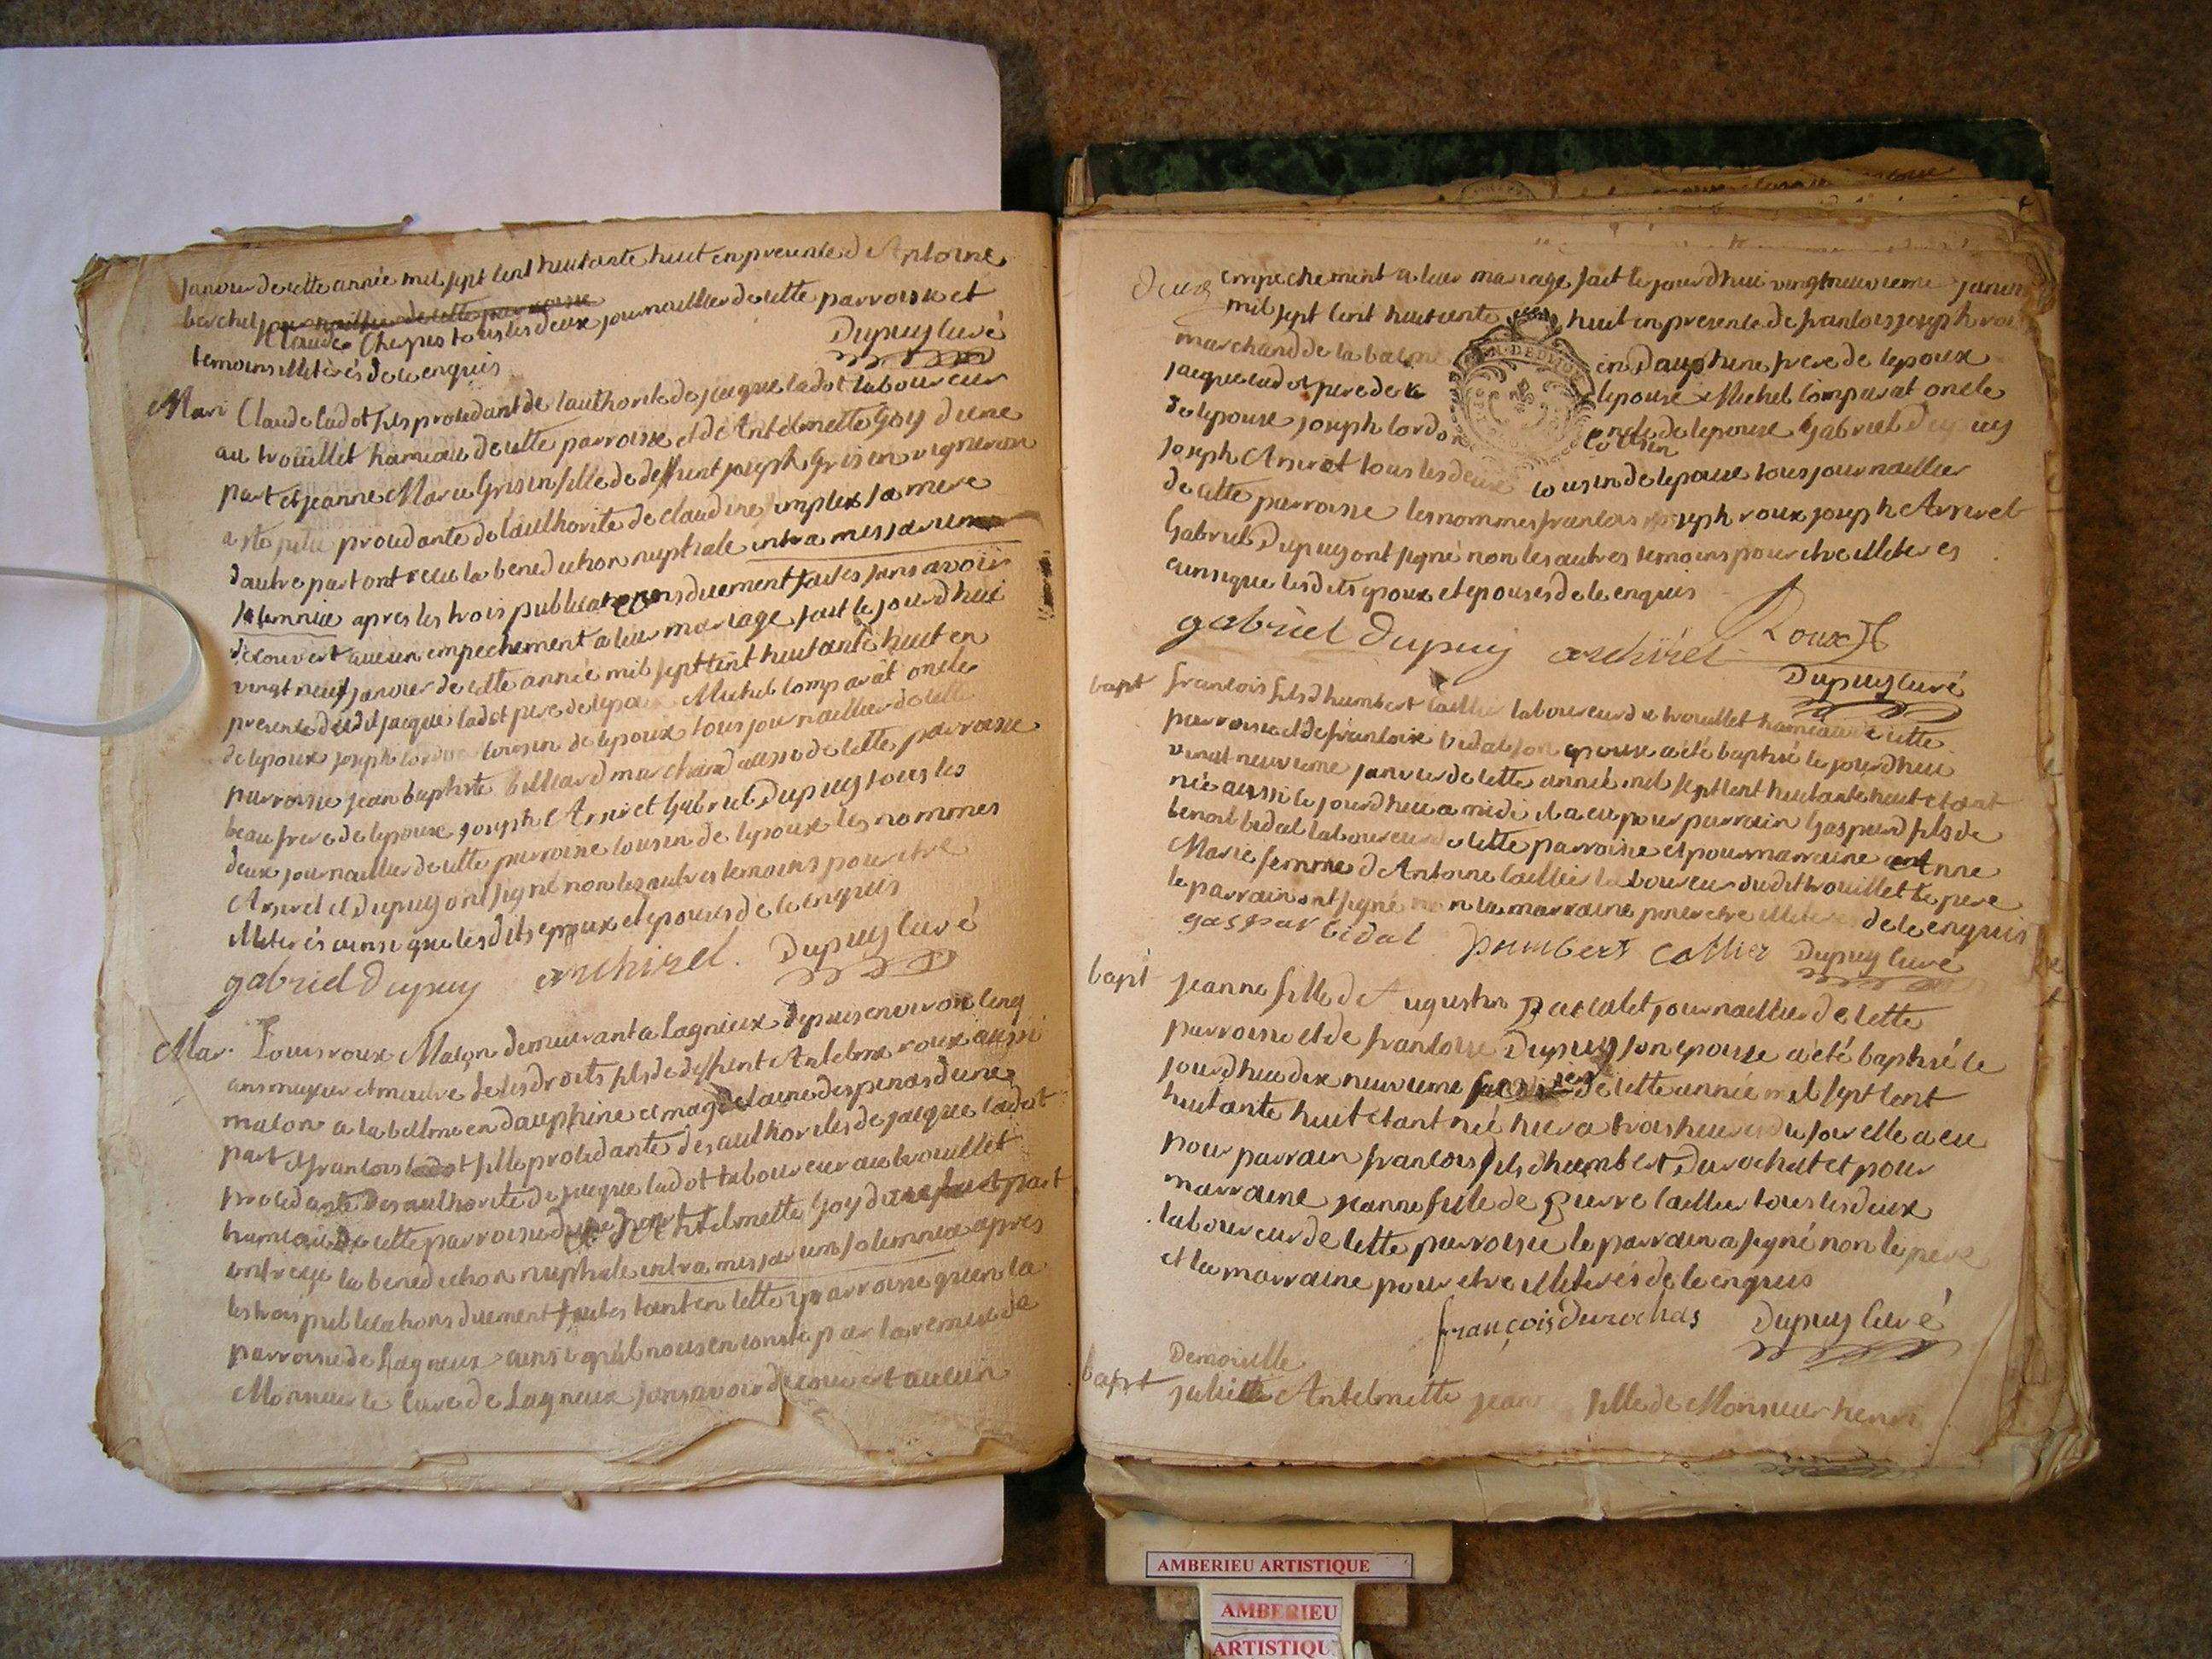 janvier de cette année mil sept cent huitante huit en presence d Antoine
berchet journaillier de cette parroisse
Claude Chepes tous les deux journaillier de cette parroisse et
temoins illiterés de ce enquis
Dupuy curé
Mari Claude Cadot fils procedant de l'authorité de jacque Cadot laboureur
au trouillet hameau de cette parroisse et de Antelmette Goy d'une
part et jeanne Marie Grisin fille de deffunt joseph Grisin vigneron
procedante de l'authorité de claudine simplex sa mere
d'autre part ont recu la benediction nuptiale intra missarum
solemnia apres les trois publications duement faites sans avoir
decouvert aucun empechement a leur mariage fait le jourdhui
vingt neuf janvier de cette année mil sept cent huitante huit en
presence dudit jacque Cadot pere de lepoux Michel Comparat oncle
de lepoux joseph cordon cousin de lepoux tous journaillier de cette
parroisse jean baptiste billiard marchand aussi de cette parroisse
beau frere de lepouse joseph Arsivet Gabriel Dupuy tous les
deux journaillier de cette parroisse cousin de lepoux les nommes
Arsivet et Dupuy ont signé non les autres temoins pour etre
illiterés ainsi que les dits epoux et epouses de ce enquis
gabriel dupuy archirel. Dupuy curé
Mar. Louis roux Maçon demeurant a Lagnieux depuis environ cinq
ans majeur et maitre de ses droits fils de deffunt Antelme roux aussi
maçon a la balme en dauphine et magdelaine despinas d'une
part et francoise Cadot fille procedante des authorités de jacque Cadot
procedante des authorité de jacque Cadot laboureur au trouillet
hameau de cette parroisse et d Antelmette Goy d'autre part
ont reçu la benediction nuptiale intra missarum solemnia apres
les trois publications duement faites tant en cette parroisse qu'en la
parroisse de Lagnieux ainsi qu'il nous en conste par la remise de
Monsieur le Curé de Lagnieux sans avoir decouvert aucun
empechement a leur mariage fait le jourdhui vingtneuvieme janvier
mil sept cent huitante huit en presence de francois joseph roux
marchand de la balme en Dauphine frere de lepoux
jacque cadot pere de lepouse Michel Comparat oncle
de lepouse joseph cordon cousin de lepouse Gabriel Dupuy
joseph Arsivet tous les deux cousin de lepouse tous journaillier
de cette parroisse les nommes francois joseph roux joseph Arsivet
Gabriel Dupuy ont signé non les autres temoins pour etre illiteres
ainsi que les dits epoux et epouses de ce enquis
gabriel dupuy archirel Roux
Dupuy curé
bapt francois fils d'humbert Caillier laboureur du trouillet hameau de cette
parroisse et de francoise bidal son epouse a été baptisé le jourdhui
vingt neuvieme janvier de cette année mil sept cent huitante huit etant
née aussi le jourdhui a midi il a eu pour parrain Gaspard fils de
benoit bidal laboureur de cette parroisse et pour marraine Anne
Marie femme d Antoine Caillier laboureur dudit trouillet le pere
le parrain ont signé non la marraine pour etre illiteres de ce enquis
gaspar bidal humbert caillier Dupuy curé
bapt jeanne fille d Augustin Pacalet journaillier de cette
parroisse et de francoise Dupuy son epouse a été baptisé le
jourdhui dix neuvieme de cette année mil sept cent
huitante huit etant née hier a trois heures du soir elle a eu
pour parrain francois fils d'humbert Durochat et pour
marraine jeanne fille de Pierre Caillier tous les deux
laboureur de cette parroisse le parrain a signé non le pere
et la marraine pour etre illiterés de ce enquis
françois durochas Dupuy curé
Demoiselle
bapt juliette Antelmette jeanne fille de Monsieur henri
AMBERIEU ARTISTIQUE
AMBERIEU
ARTISTIQU